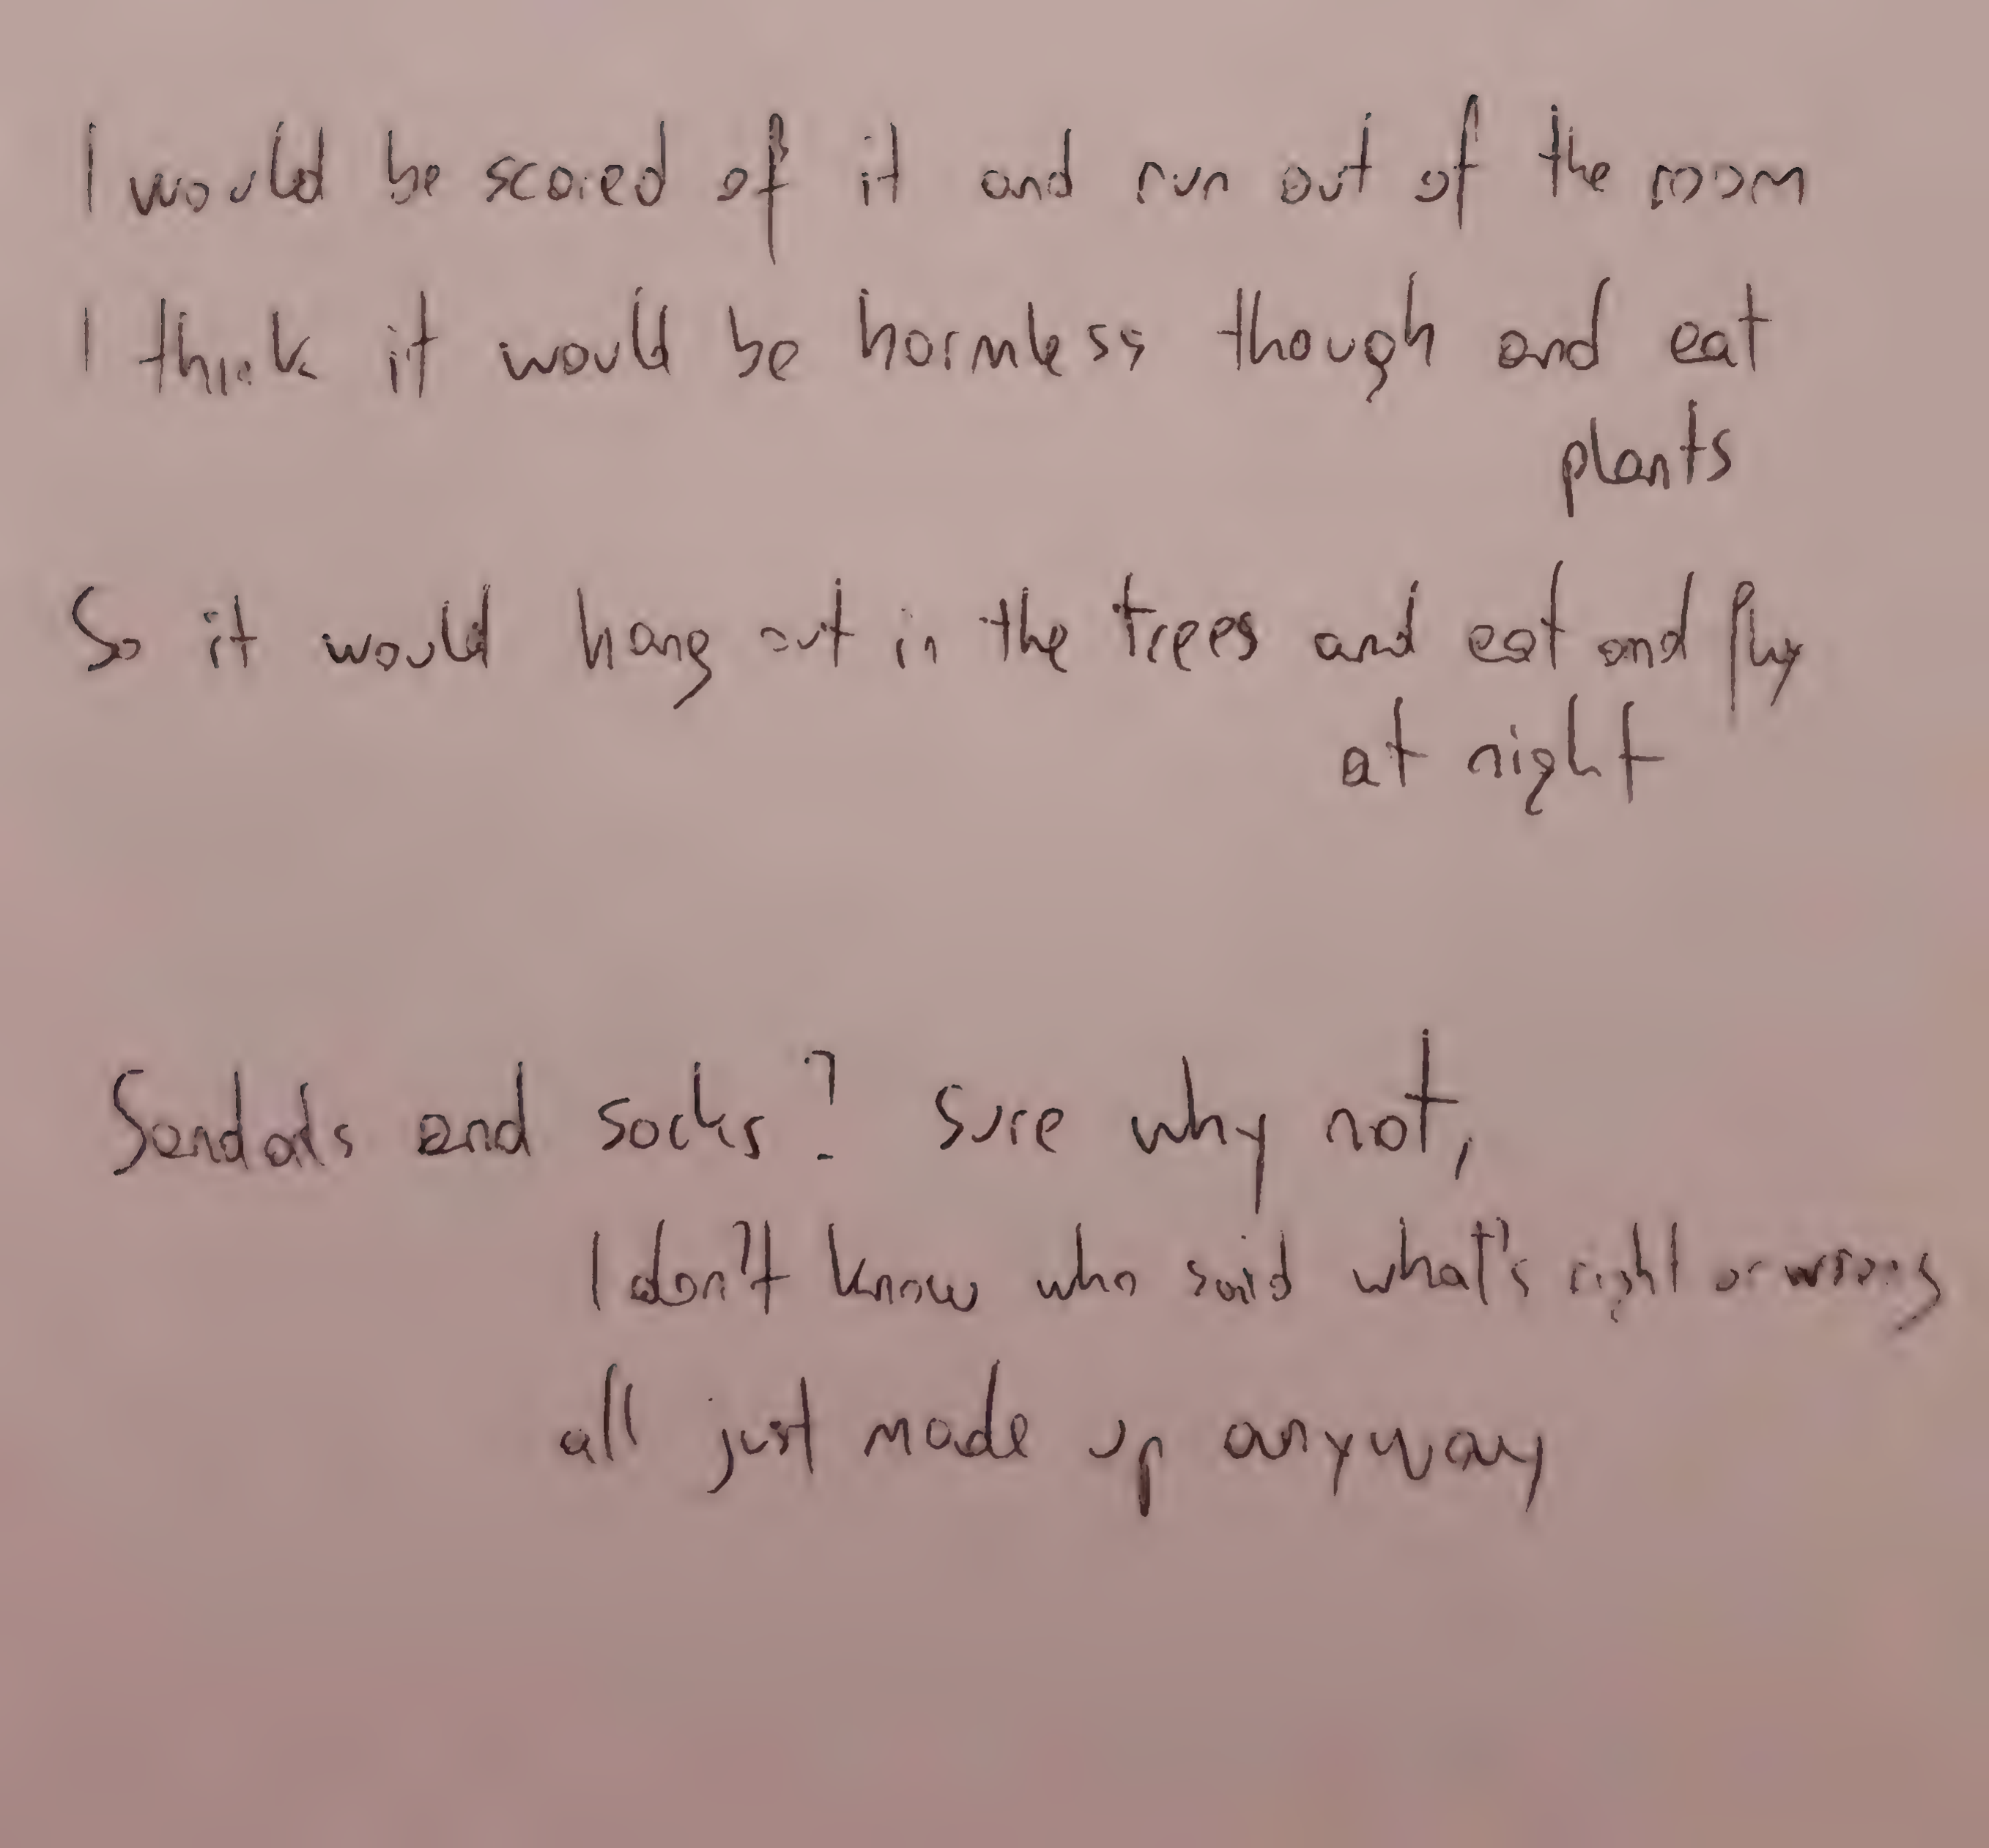 I would be scared of it and run out of the room
I think it would be harmless though and eat
plants
So it would hang out in the trees and eat and fly
at night
Sandals and socks? Sure why not,
I don't know who said what's right or wrong
all just made up anyway